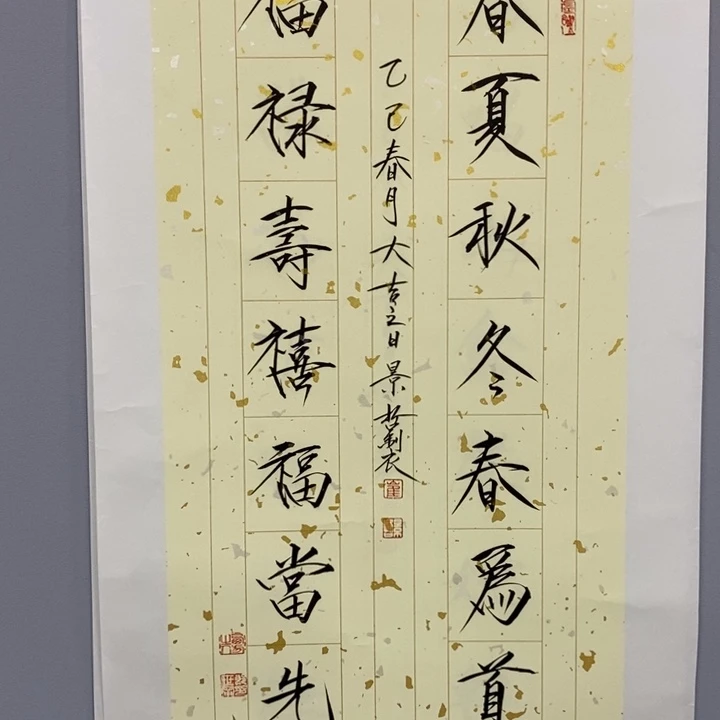 春夏秋冬春為首
福祿壽禧福當先
乙巳春月大吉之日景